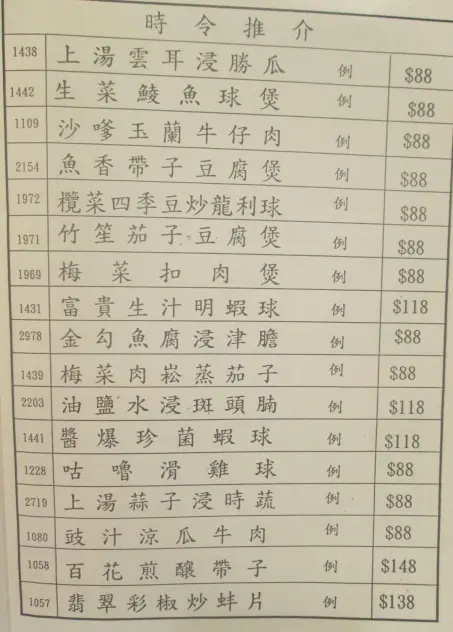 時令推介
1438 上湯雲耳浸勝瓜 例 $88
1442 生菜鯪魚球煲 例 $88
1109 沙嗲玉蘭牛仔肉 例 $88
2154 魚香帶子豆腐煲 例 $88
1972 欖菜四季豆炒龍利球 例 $88
1971 竹笙茄子豆腐煲 例 $88
1969 梅菜扣肉煲 例 $88
1431 富貴生汁明蝦球 例 $118
2978 金勾魚腐浸津膽 例 $88
1439 梅菜肉崧蒸茄子 例 $88
2203 油鹽水浸斑頭腩 例 $118
1441 醬爆珍菌蝦球 例 $118
1228 咕嚕滑雞球 例 $88
2719 上湯蒜子浸時蔬 例 $88
1080 豉汁涼瓜牛肉 例 $88
1058 百花煎釀帶子 例 $148
1057 翡翠彩椒炒蚌片 例 $138